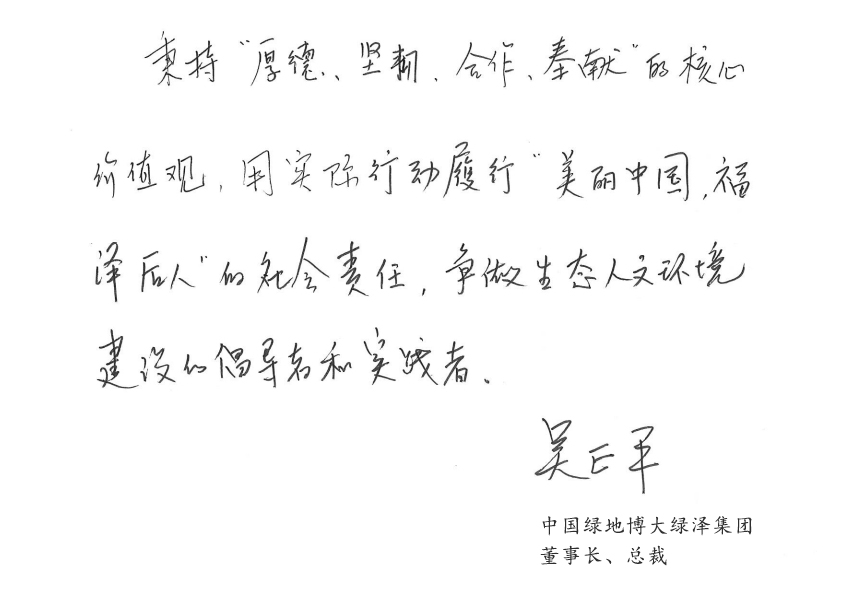 秉持“厚德、坚韧、合作、奉献”的核心
价值观,用实际行动履行“美丽中国,福
泽后人”的社会责任,争做生态人文环境
建设的倡导者和实践者、
吴正平
中国绿地博大绿泽集团
董事长、总裁